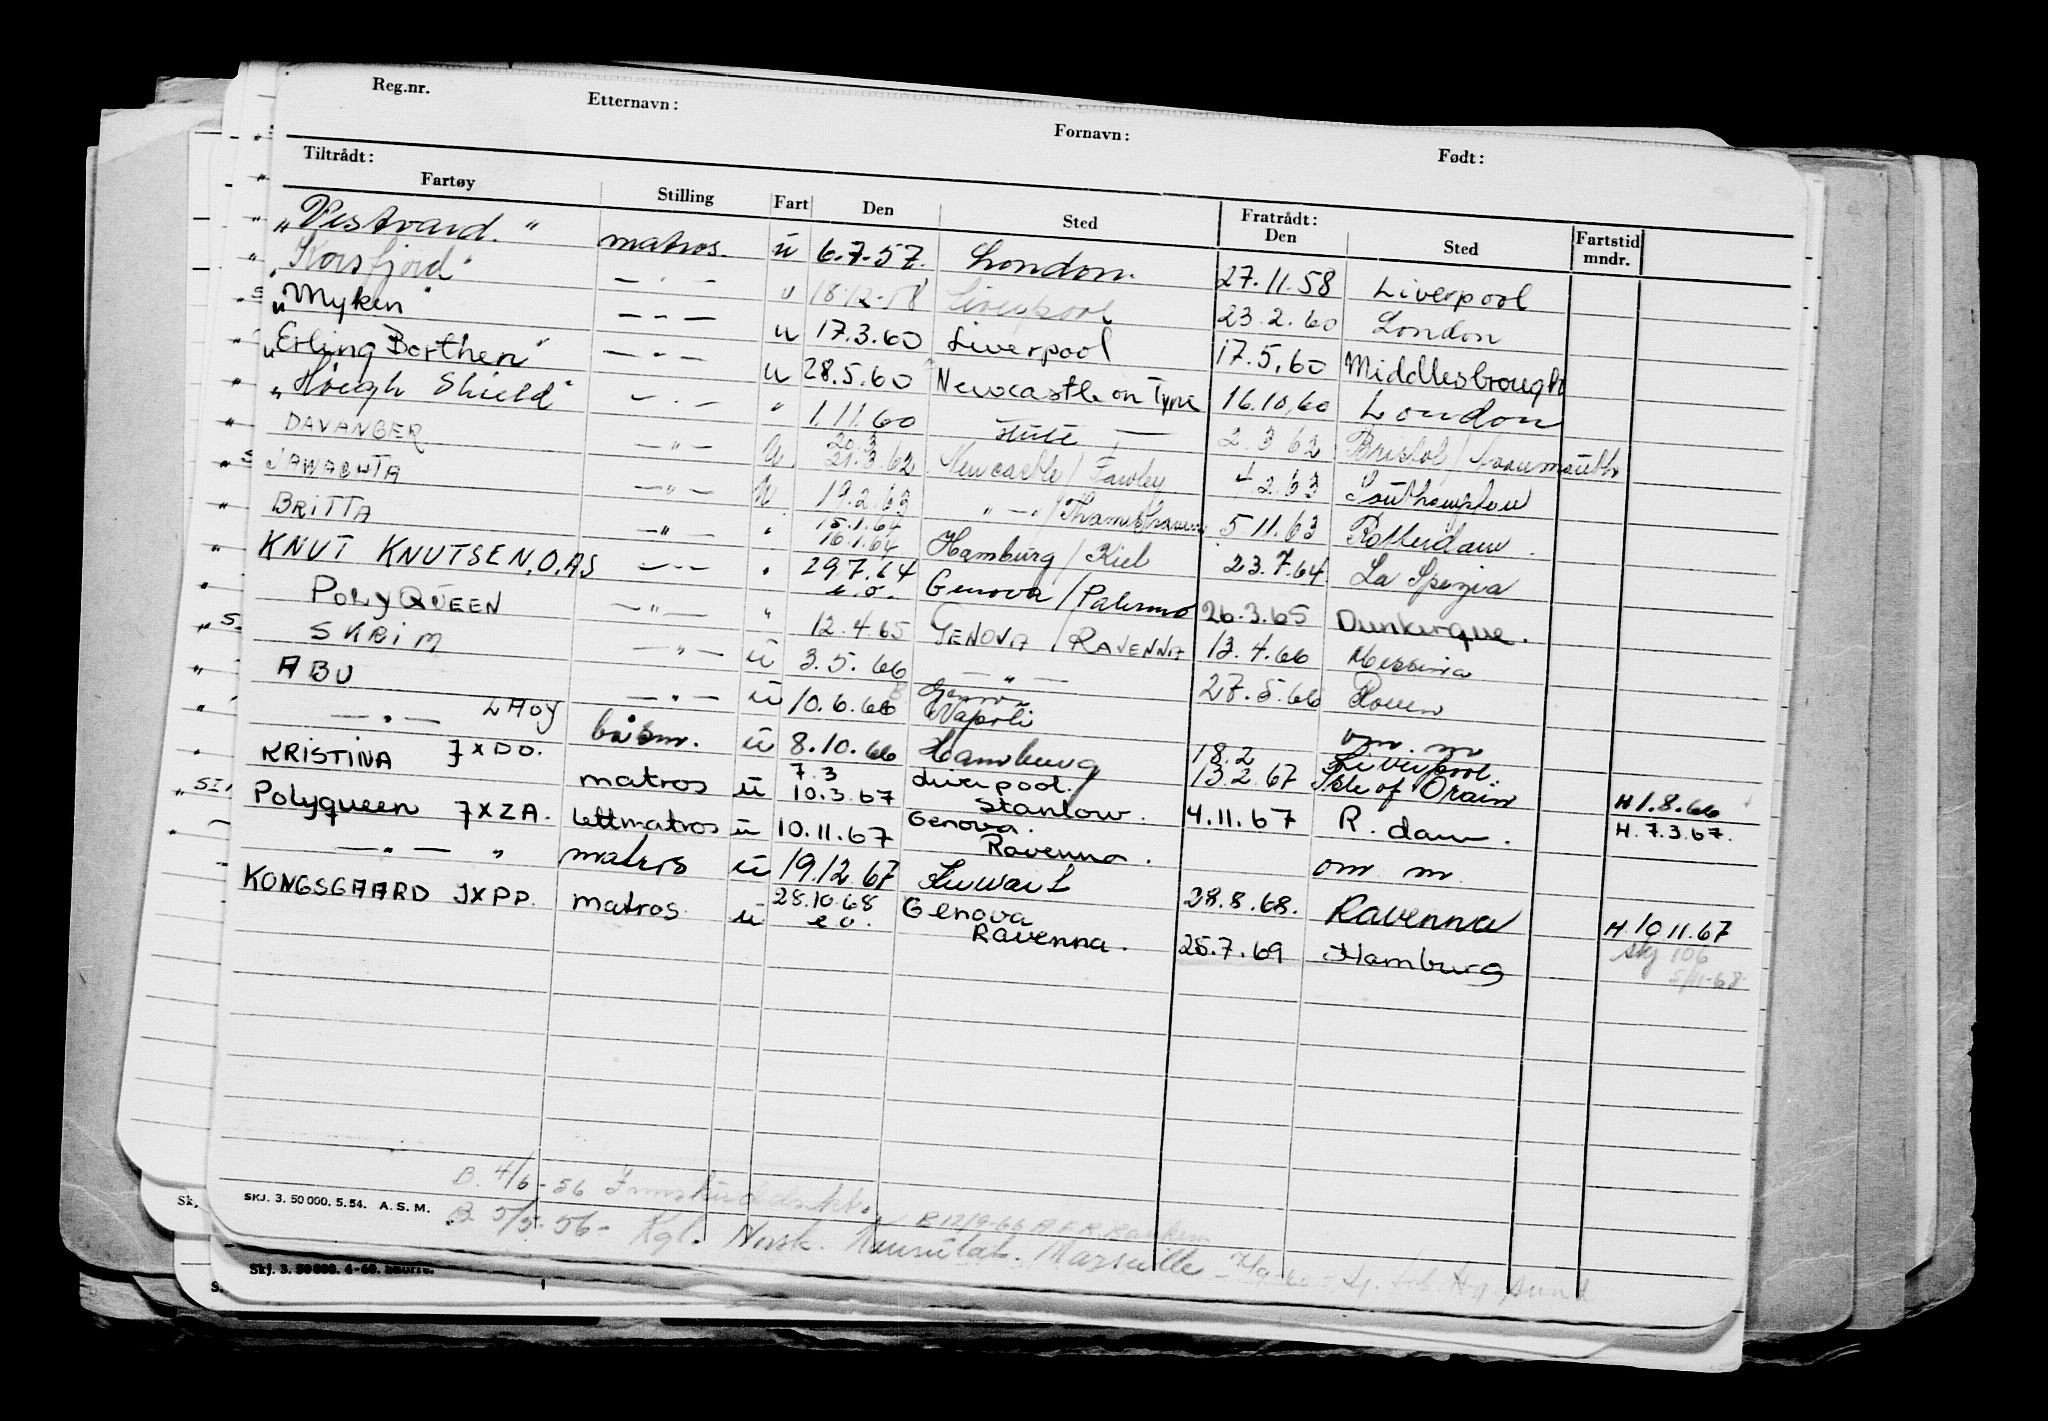 Reg.nr. Etternavn: Fornavn: Født:
Tiltrådt: Fratrådt:
Fartøy Stilling Fart Den Sted Den Sted Fartstid mndr.
"Vestvard." matros. u 6.7.57. London. 27.11.58 Liverpool
"Korsfjord" — " — u 18.12.58 Liverpool 23.2.60 London
"Myken" — " — u 17.3.60 Liverpool 17.5.60 Middlesbrough
"Erling Borthen" — " — u 28.5.60 Newcastle on Tyne 16.10.60 London
"Høegh Shield" — " — " 1.11.60 — 2.3.62 Bristol / Avonmouth
DAVANGER — " — u. 20.3 21.3.62 Newcastle / Fawley 4.2.63 Southampton
JAWACHTA — " — u 19.2.63 " — " / Thameshaven 5.11.63 Rotterdam.
BRITTA — " — " 15.1.64 16.1.64 Hamburg / Kiel 23.7.64 La Spezia
KNUT KNUTSEN.O.AS — " — " 29.7.64 e.o. Genova / Palermo 26.3.65 Dunkerque.
POLYQUEEN — " — " 12.4.65 GENOVA / RAVENNA 13.4.66 Messina
SKRIM — " — ü 3.5.66 — " — 27.5.66 Rouen
ABU — " — ü 10.6.66 Genova Napoli om. m
— " — LAOY båtsm. ü 8.10.66 Hamburg 18.2 13.2.67 Liverpool. Isle of Grain H 1.8.66
KRISTINA JXDO. matros ü 7.3 10.3.67 Liverpool. Stanlow. 4.11.67 R.dam. H. 7.3.67.
Polyqueen JXZA. lettmatros ü 10.11.67 Genova. Ravenna. om m.
— " — " matros ü 19.12.67 Kuwait 28.8.68. Ravenna H. 10.11.67
KONGSGAARD JXPP. matros ü 28.10.68 e.o. Genova Ravenna. 25.7.69 Hamburg skj 106
5/11-68
B. 4/6-56
SKJ. 3. 50 000. 5.54. A. S. M.
B 12/9-66
B 5/5-56- Kgl. Norsk. Konsulat. Marseille
Skj. 3. 50 000. 4-60.